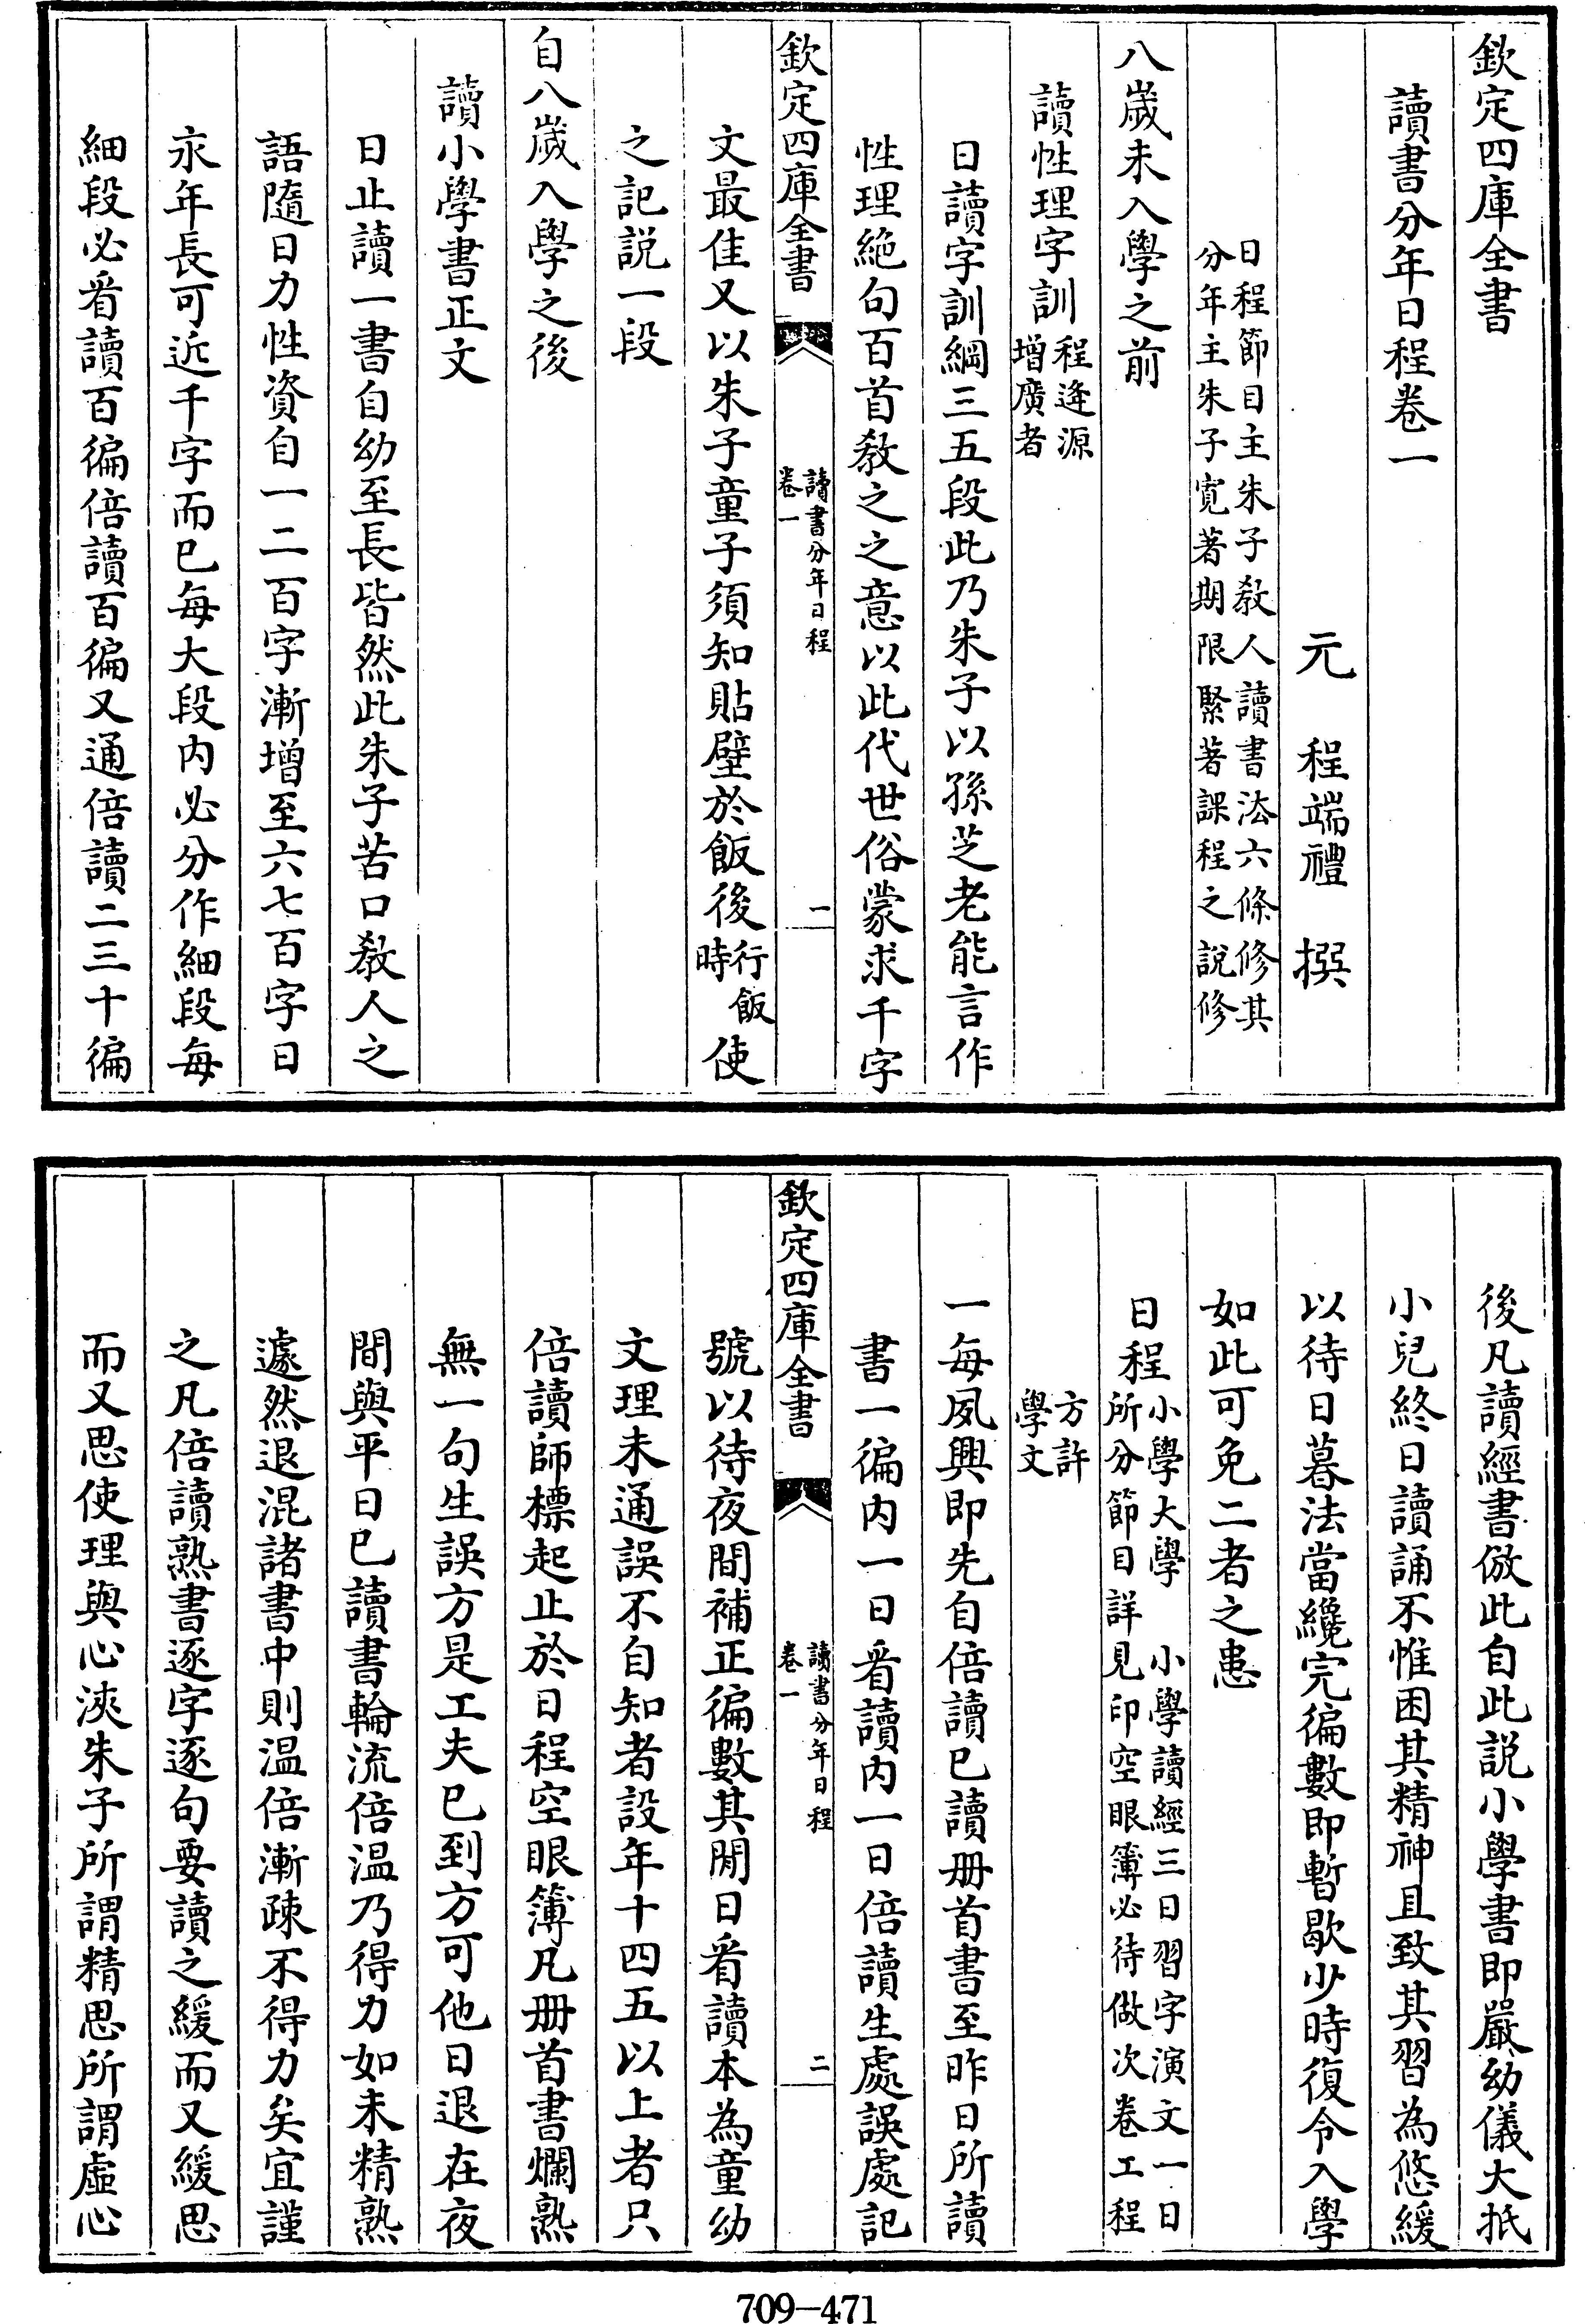 欽定四庫全書
讀書分年日程卷一
元　程端禮　撰
日程節目主朱子教人讀書法六條修其
分年主朱子寛著期限緊著課程之說修
八歲未入學之前
讀性理字訓程逢源
增廣者
日讀字訓綱三五段此乃朱子以孫芝老能言作
性理絶句百首教之之意以此代世俗蒙求千字
欽定四庫全書
讀書分年日程
卷一
一
文最佳又以朱子童子須知貼壁於飯後行飯
時使
之記説一段
自八歲入學之後
讀小學書正文
日止讀一書自幼至長皆然此朱子苦口教人之
語隨日力性資自一二百字漸增至六七百字日
永年長可近千字而已每大段内必分作細段每
細段必看讀百徧倍讀百徧又通倍讀二三十徧
後凡讀經書倣此自此説小學書即嚴幼儀大抵
小兒終日讀誦不惟困其精神且致其習為悠緩
以待日暮法當纔完徧數即暫歇少時復令入學
如此可免二者之患
日程小學大學　小學讀經三日習字演文一日
所分節目詳見印空眼簿必待做次卷工程
方許
學文
一每夙興即先自倍讀已讀册首書至昨日所讀
書一徧内一日看讀内一日倍讀生處誤處記
欽定四庫全書
讀書分年日程
卷一
二
號以待夜間補正徧數其閒日看讀本為童幼
文理未通誤不自知者設年十四五以上者只
倍讀師標起止於日程空眼簿凡册首書爛熟
無一句生誤方是工夫已到方可他日退在夜
間與平日已讀書輪流倍温乃得力如未精熟
遽然退混諸書中則温倍漸疎不得力矣宜謹
之凡倍讀熟書逐字逐句要讀之緩而又緩思
而又思使理與心浹朱子所謂精思所謂虚心
709-471